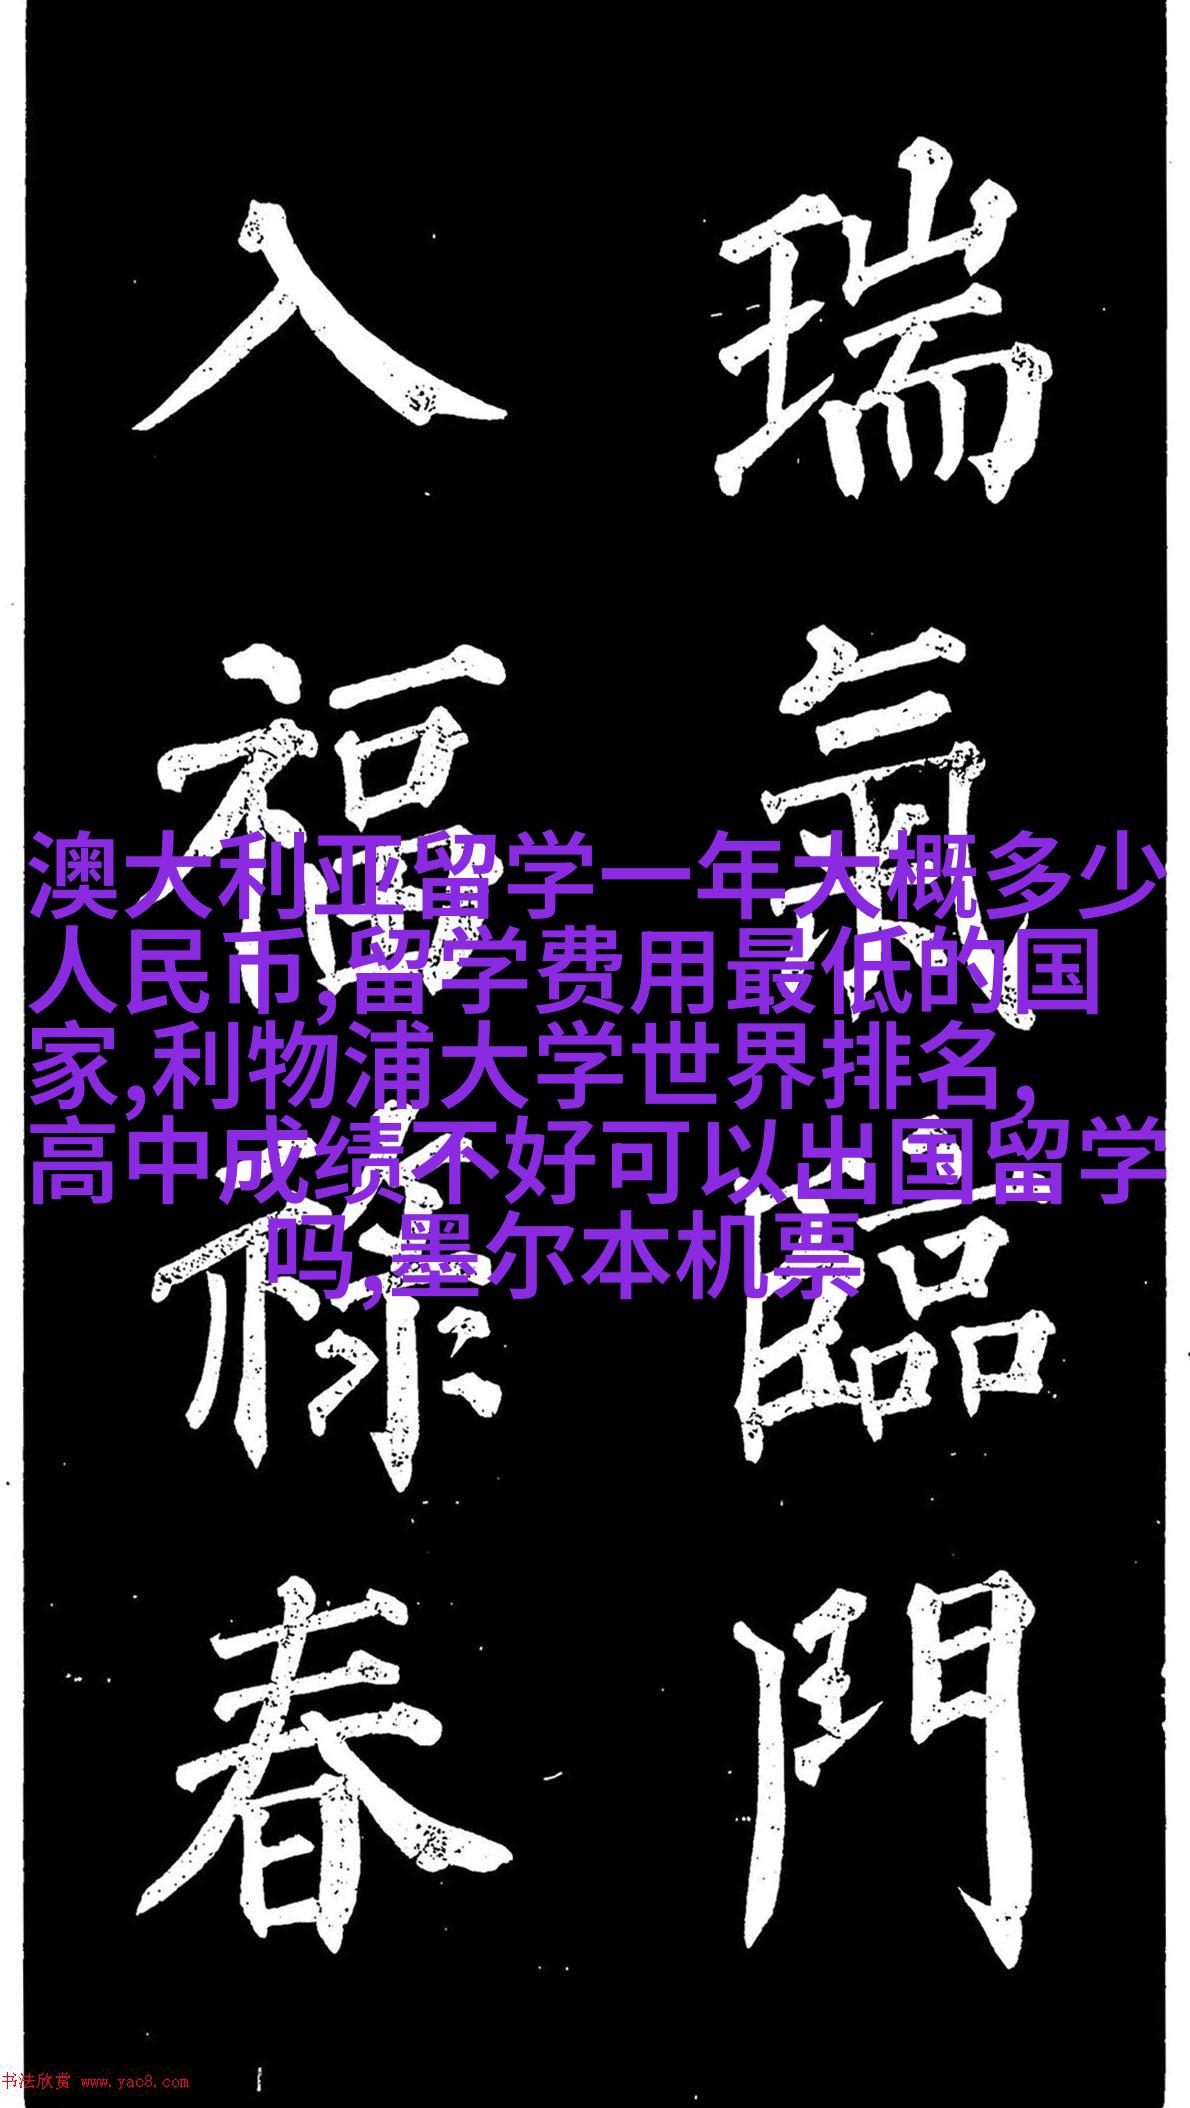 瑞氣臨門
入福祿春
澳大利亚留学一年大概多少
人民币,留学费用最低的国
家,利物浦大学世界排名,
高中成绩不好可以出国留学
吗,墨尔本机票
书法欣赏 www.yac8.com